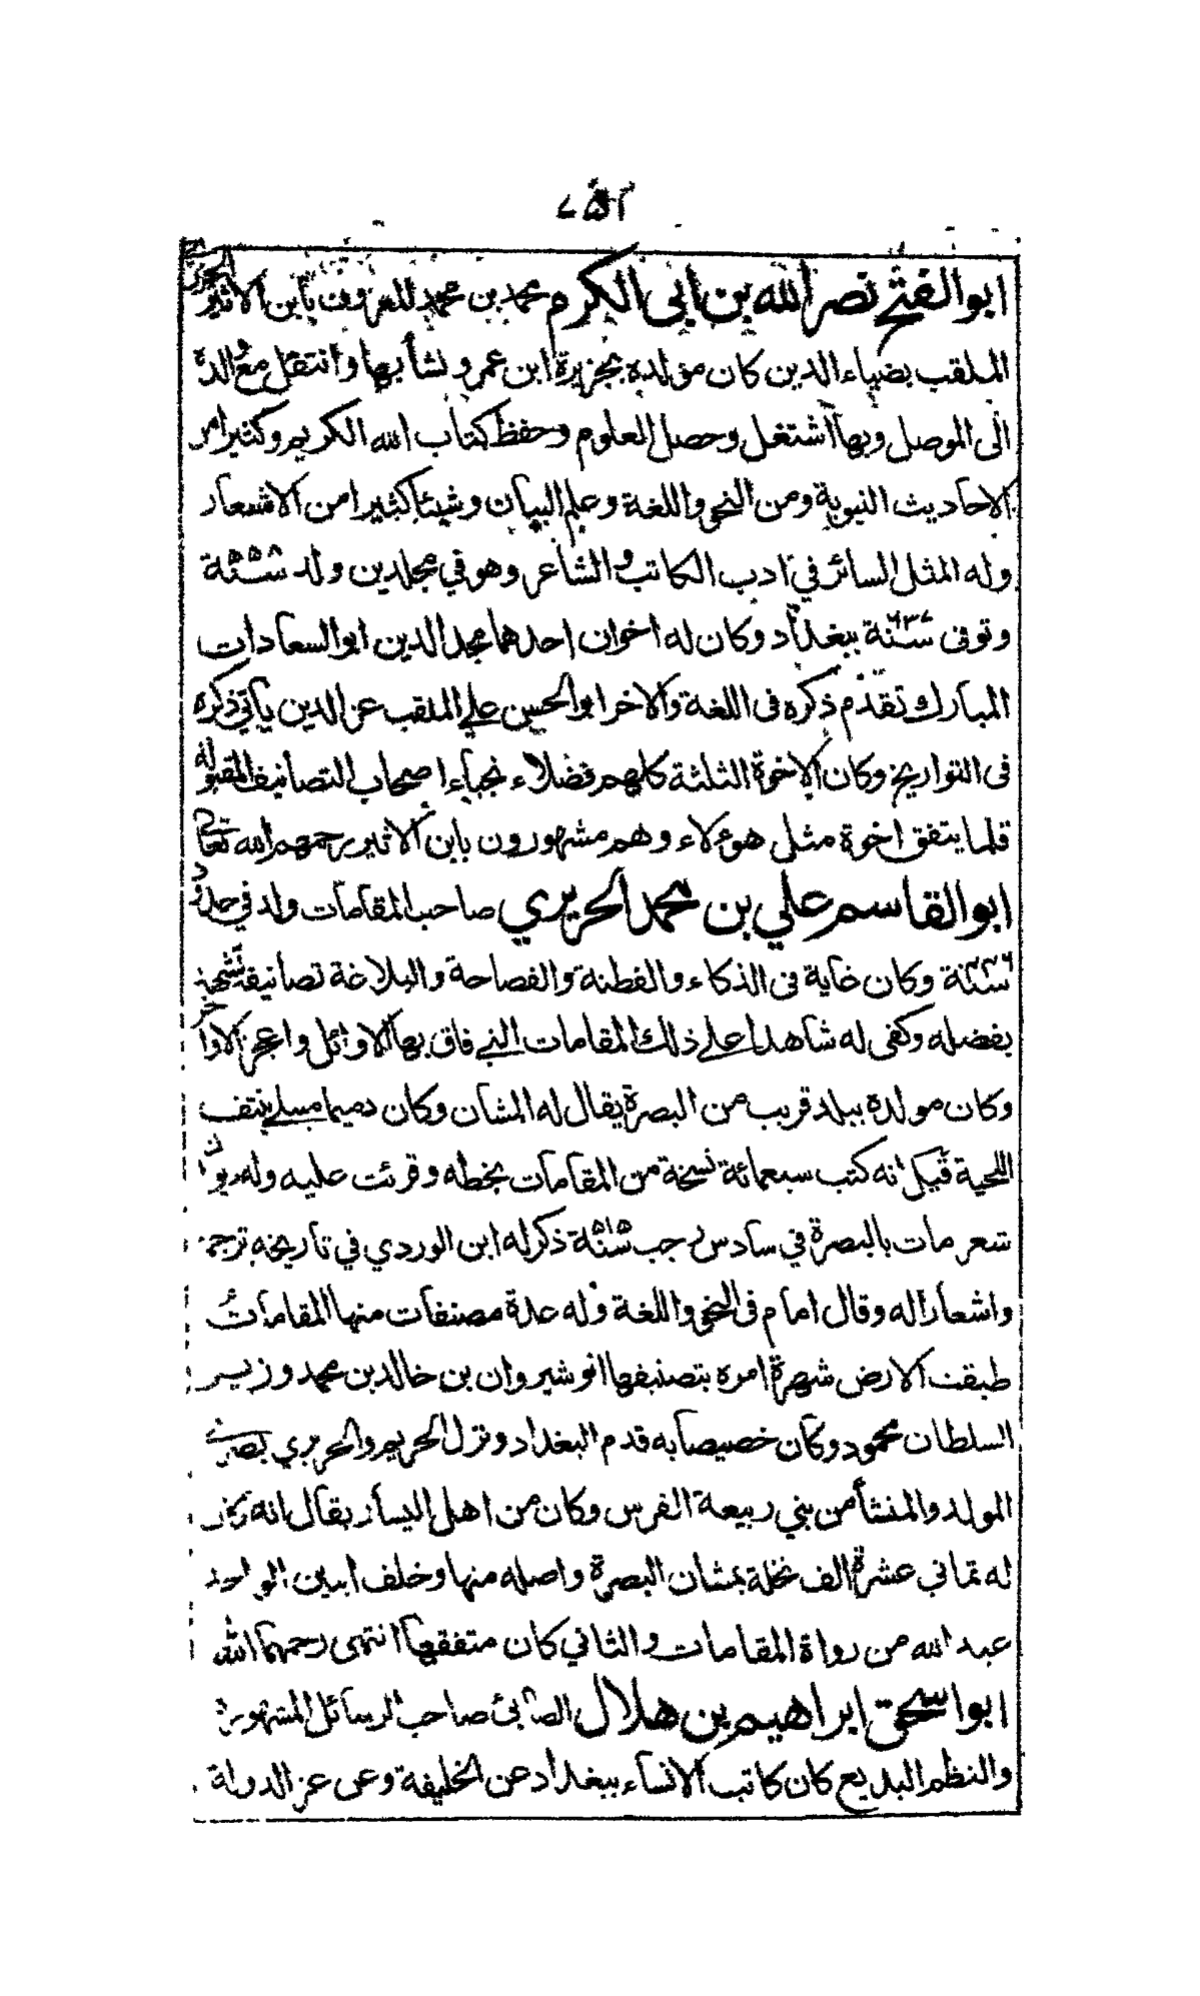 ٧٥٢
ابو الفتح نصر الله بن ابى الكرم محمد بن محمد المعروف بابن الاثير الجزري
الملقب بضياء الدين كان مولده بجزيرة ابن عمرو نشأ بها وانتقل مع والده
الى الموصل وبها اشتغل وحصل العلوم وحفظ كتاب الله الكريم وكثيرا من
الاحاديث النبوية ومن النحو واللغة وعلم البيان وشيئا كثيرا من الاشعار
وله المثل السائر في ادب الكاتب والشاعر وهو في مجلدين ولد سنة ٥٥٨
وتوفى سنة ٦٣٧ ببغداد وكان له اخوان احدهما مجد الدين ابو السعادات
المبارك تقدم ذكره فى اللغة والاخر ابو الحسين علي الملقب عز الدين ياتي ذكره
فى التواريخ وكان الاخوة الثلثة كلهم فضلاء نجباء اصحاب التصانيف المقبولة
قلما يتفق اخوة مثل هؤلاء وهم مشهورون بابن الاثير رحمهم الله تعالى
ابو القاسم علي بن محمد الحريري صاحب المقامات ولد في حدود
سنة ٤٤٦ وكان غاية فى الذكاء والفطنة والفصاحة والبلاغة تصانيفه تشهد
بفضله وكفى له شاهدا على ذلك المقامات التي فاق بها الاوائل واعجز الاواخر
وكان مولده ببلد قريب من البصرة يقال له المشان وكان دميما مبسلى بنتف
اللحية قيل انه كتب سبعمائة نسخة من المقامات بخطه وقرئت عليه وله ديوان
شعر مات بالبصرة في سادس رجب سنة ٥١٥ ذكر له ابن الوردي في تاريخه ترجمة
واشعارا له وقال امام فى النحو واللغة وله عدة مصنفات منها المقامات
طبقت الارض شهرة امره بتصنيفها انوشيروان بن خالد بن محمد وزير
السلطان محمود وكان خصيصا به قدم البغداد ونزل الحريم والحريري بصري
المولد والمنشأ من بني ربيعة الفرس وكان من اهل اليسار يقال انه كان
له ثماني عشرة الف نخلة بمشان البصرة واصله منها وخلف ابنين الواحد
عبد الله من رواة المقامات والثاني كان متفقها انتهى رحمهما الله
ابو اسحق ابراهيم بن هلال الصابئ صاحب الرسائل المشهورة
والنظم البديع كان كاتب الانشاء ببغداد عن الخليفة وعن عز الدولة